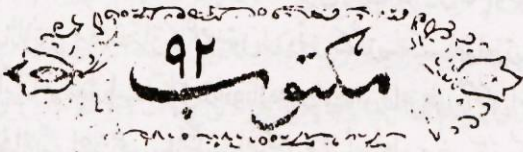 مکتوب ۹۲